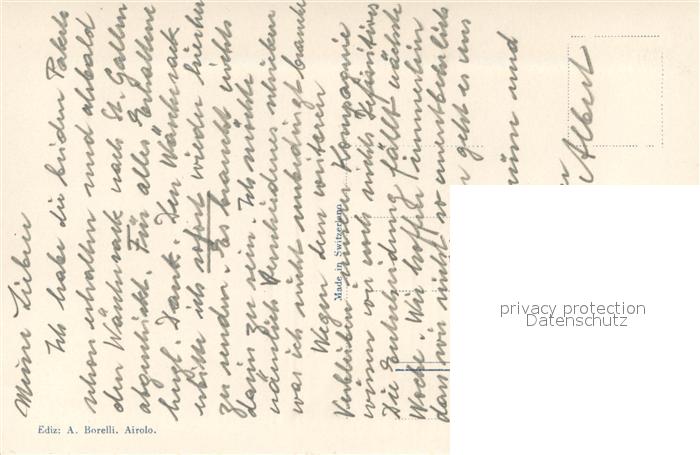 Meine Lieben
Ich habe die beiden Pakete
schon erhalten und alsbald
den Wäschesack nach St. Gallen
abgeschickt. Für alles Erhaltene
herzl. Dank. Den Wäschesack
bitte ich sofort wieder hierher
zu senden. Es braucht nichts
darin zu sein. Ich möchte
nämlich Verschiedenes schicken
was ich nicht unbedingt brauche
Wegen dem weiteren
Verbleiben in unserer Kompagnie
wissen wir noch nichts Definitives
Die Entscheidung fällt nächste
Woche. Wir hoffen immerhin
dass wir nicht so unentbehrlich
geht es uns
und
Albert
Made in Switzerland
Ediz: A. Borelli. Airolo.
privacy protection
Datenschutz